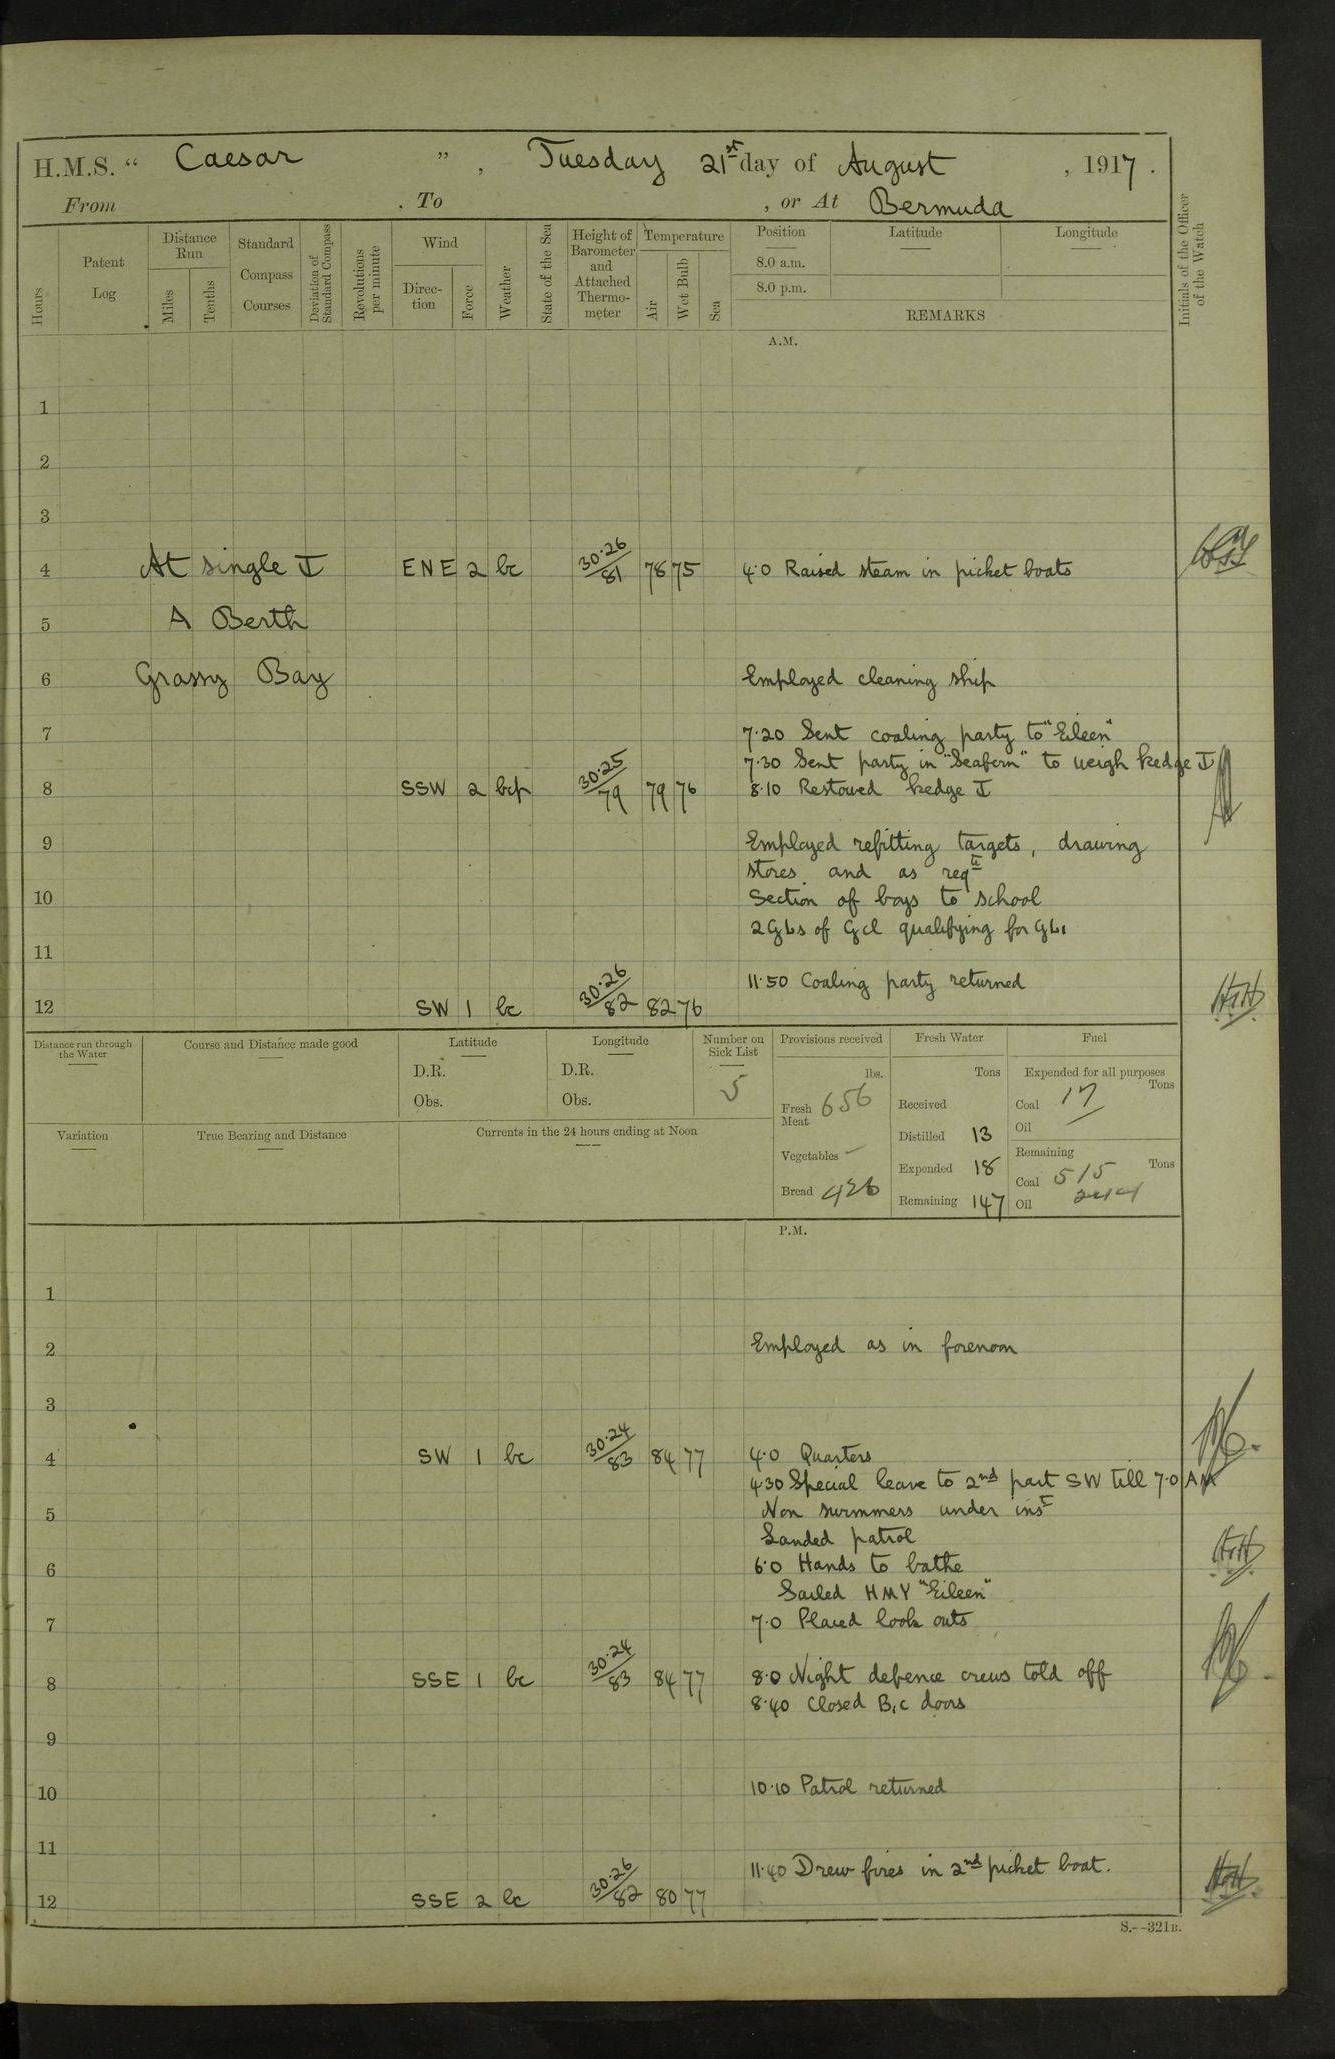 H.M.S. “ Caesar ” , Tuesday 21st day of August , 1917 .
From . To , or At Bermuda
Hours
Patent Log
Distance Run
Miles
Tenths
Standard Compass Courses
Deviation of Standard Compass
Revolutions per minute
Wind
Direction
Force
Weather
State of the Sea
Height of Barometer and Attached Thermometer
Temperature
Air
Wet Bulb
Sea
Position
8.0 a.m.
8.0 p.m.
Latitude
Longitude
REMARKS
Initials of the Officer of the Watch
A.M.
1
2
3
4 At single ENE 2 bc 30.26/81 78 75 4.0 Raised steam in picket boats
5 A Berth
6 Grassy Bay Employed cleaning ship
7 7.20 Sent coaling party to "Eileen"
7.30 Sent party in "Seafern" to weigh kedge
8 SSW 2 bcp 30.25/79 79 76 8.10 Restowed kedge
9 Employed refitting targets, drawing
stores and as req
10 Section of boys to school
2 GLs of GCl qualifying for GL1
11
11.50 Coaling party returned
12 SW 1 bc 30.26/82 82 76 HH
Distance run through the Water
Course and Distance made good
Latitude
D.R.
Obs.
Longitude
D.R.
Obs.
Number on Sick List
5
Variation
True Bearing and Distance
Currents in the 24 hours ending at Noon
Provisions received
lbs.
Fresh Meat 656
Vegetables –
Bread 426
Fresh Water
Tons
Received
Distilled 13
Expended 18
Remaining 147
Fuel
Expended for all purposes
Tons
Coal 17
Oil
Remaining
Tons
Coal 515
Oil
P.M.
1
2 Employed as in forenoon
3
4 SW 1 bc 30.24/83 84 77 4.0 Quarters
4.30 Special leave to 2nd part SW till 7.0 AM
5 Non swimmers under inst
Landed patrol
6 6.0 Hands to bathe HH
Sailed HMY "Eileen"
7 7.0 Placed look outs
8 SSE 1 bc 30.24/83 84 77 8.0 Night defence crews told off
8.40 Closed B, C doors
9
10 10.10 Patrol returned
11
11.40 Drew fires in 2nd picket boat.
12 SSE 2 bc 30.26/82 80 77 HH
S.--321B.